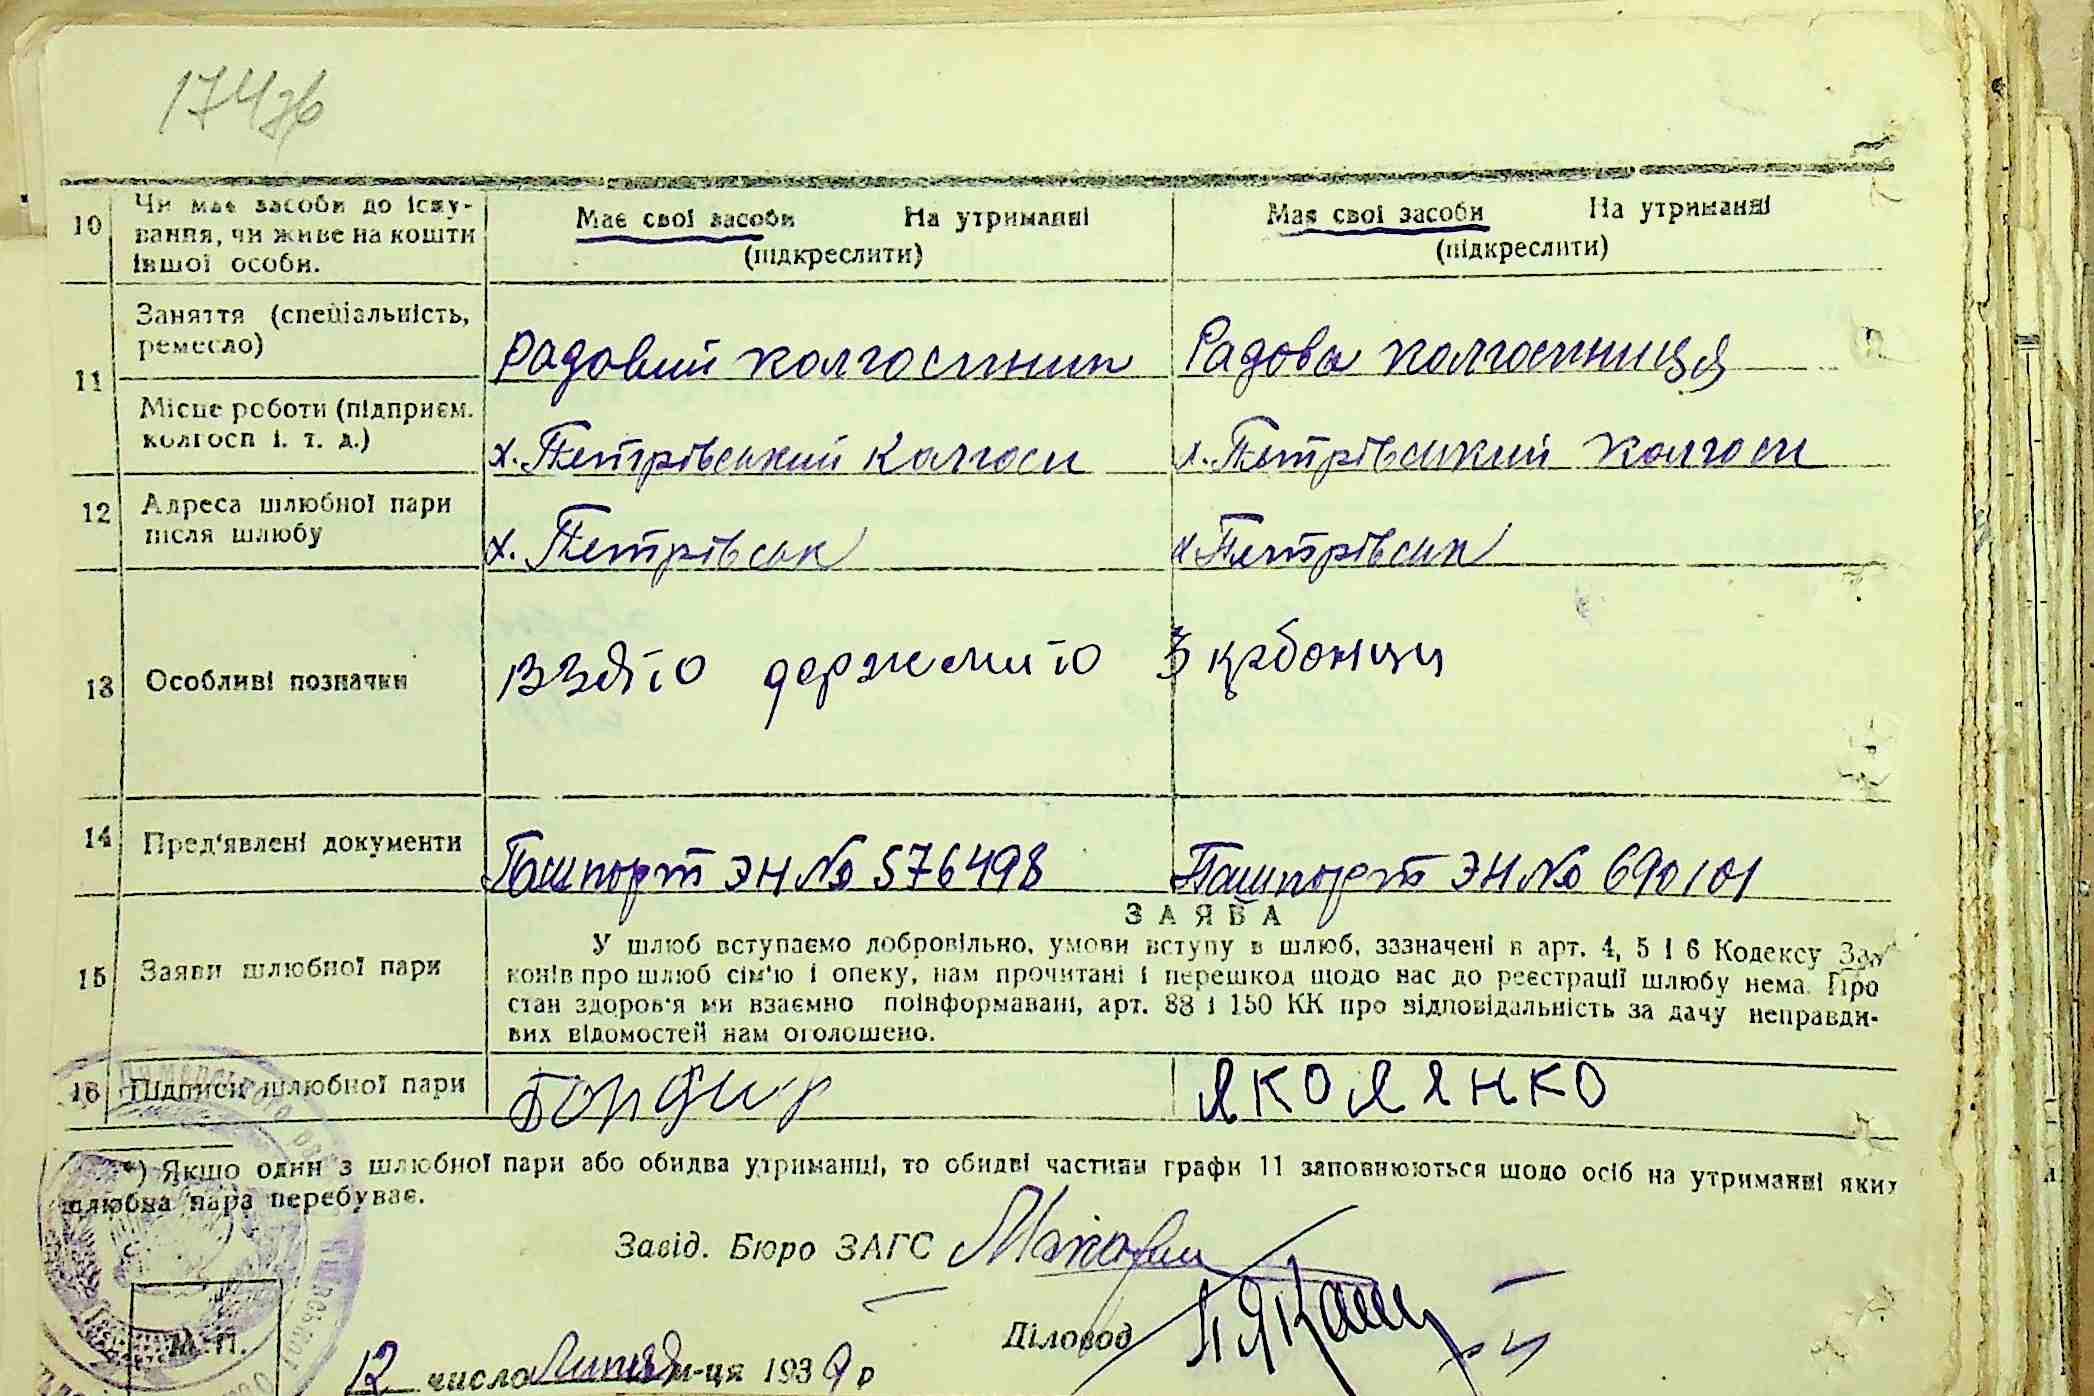 174зв
10 Чи має засоби до існу-
вання, чи живе на кошти
іншої особи.
Має свої засоби На утриманні
(підкреслити)
Має свої засоби На утриманні
(підкреслити)
11 Заняття (спеціальність,
ремесло)
Радовий колгоспник
Радова колгоспниця
Місце роботи (підприєм.
колгосп і. т. д.)
х. Петрівський колгосп
х. Петрівський колгосп
12 Адреса шлюбної пари
після шлюбу
х. Петрівськ
х Петрівськ
13 Особливі позначки
взято держмито 3 крбованци
14 Пред'явлені документи
Пашпорт ЭН № 576498
Пашпорт ЭН № 690101
15 Заяви шлюбної пари
ЗАЯВА
У шлюб вступаємо добровільно, умови вступу в шлюб, зззначені в арт. 4, 5 і 6 Кодексу За-
конів про шлюб сім'ю і опеку, нам прочитані і перешкод щодо нас до реєстрації шлюбу нема. Про
стан здоров'я ми взаємно поінформавані, арт. 88 і 150 КК про відповідальність за дачу неправди-
вих відомостей нам оголошено.
16 Підписи шлюбної пари
Бондир
ЯКОЛЯНКО
*) Якщо один з шлюбної пари або обидва утриманці, то обидві частини графи 11 заповнюються щодо осіб на утриманні яких
шлюбна пара перебуває.
Завід. Бюро ЗАГС
Діловод
М. П.
12 число Липня м-ця 1939 р